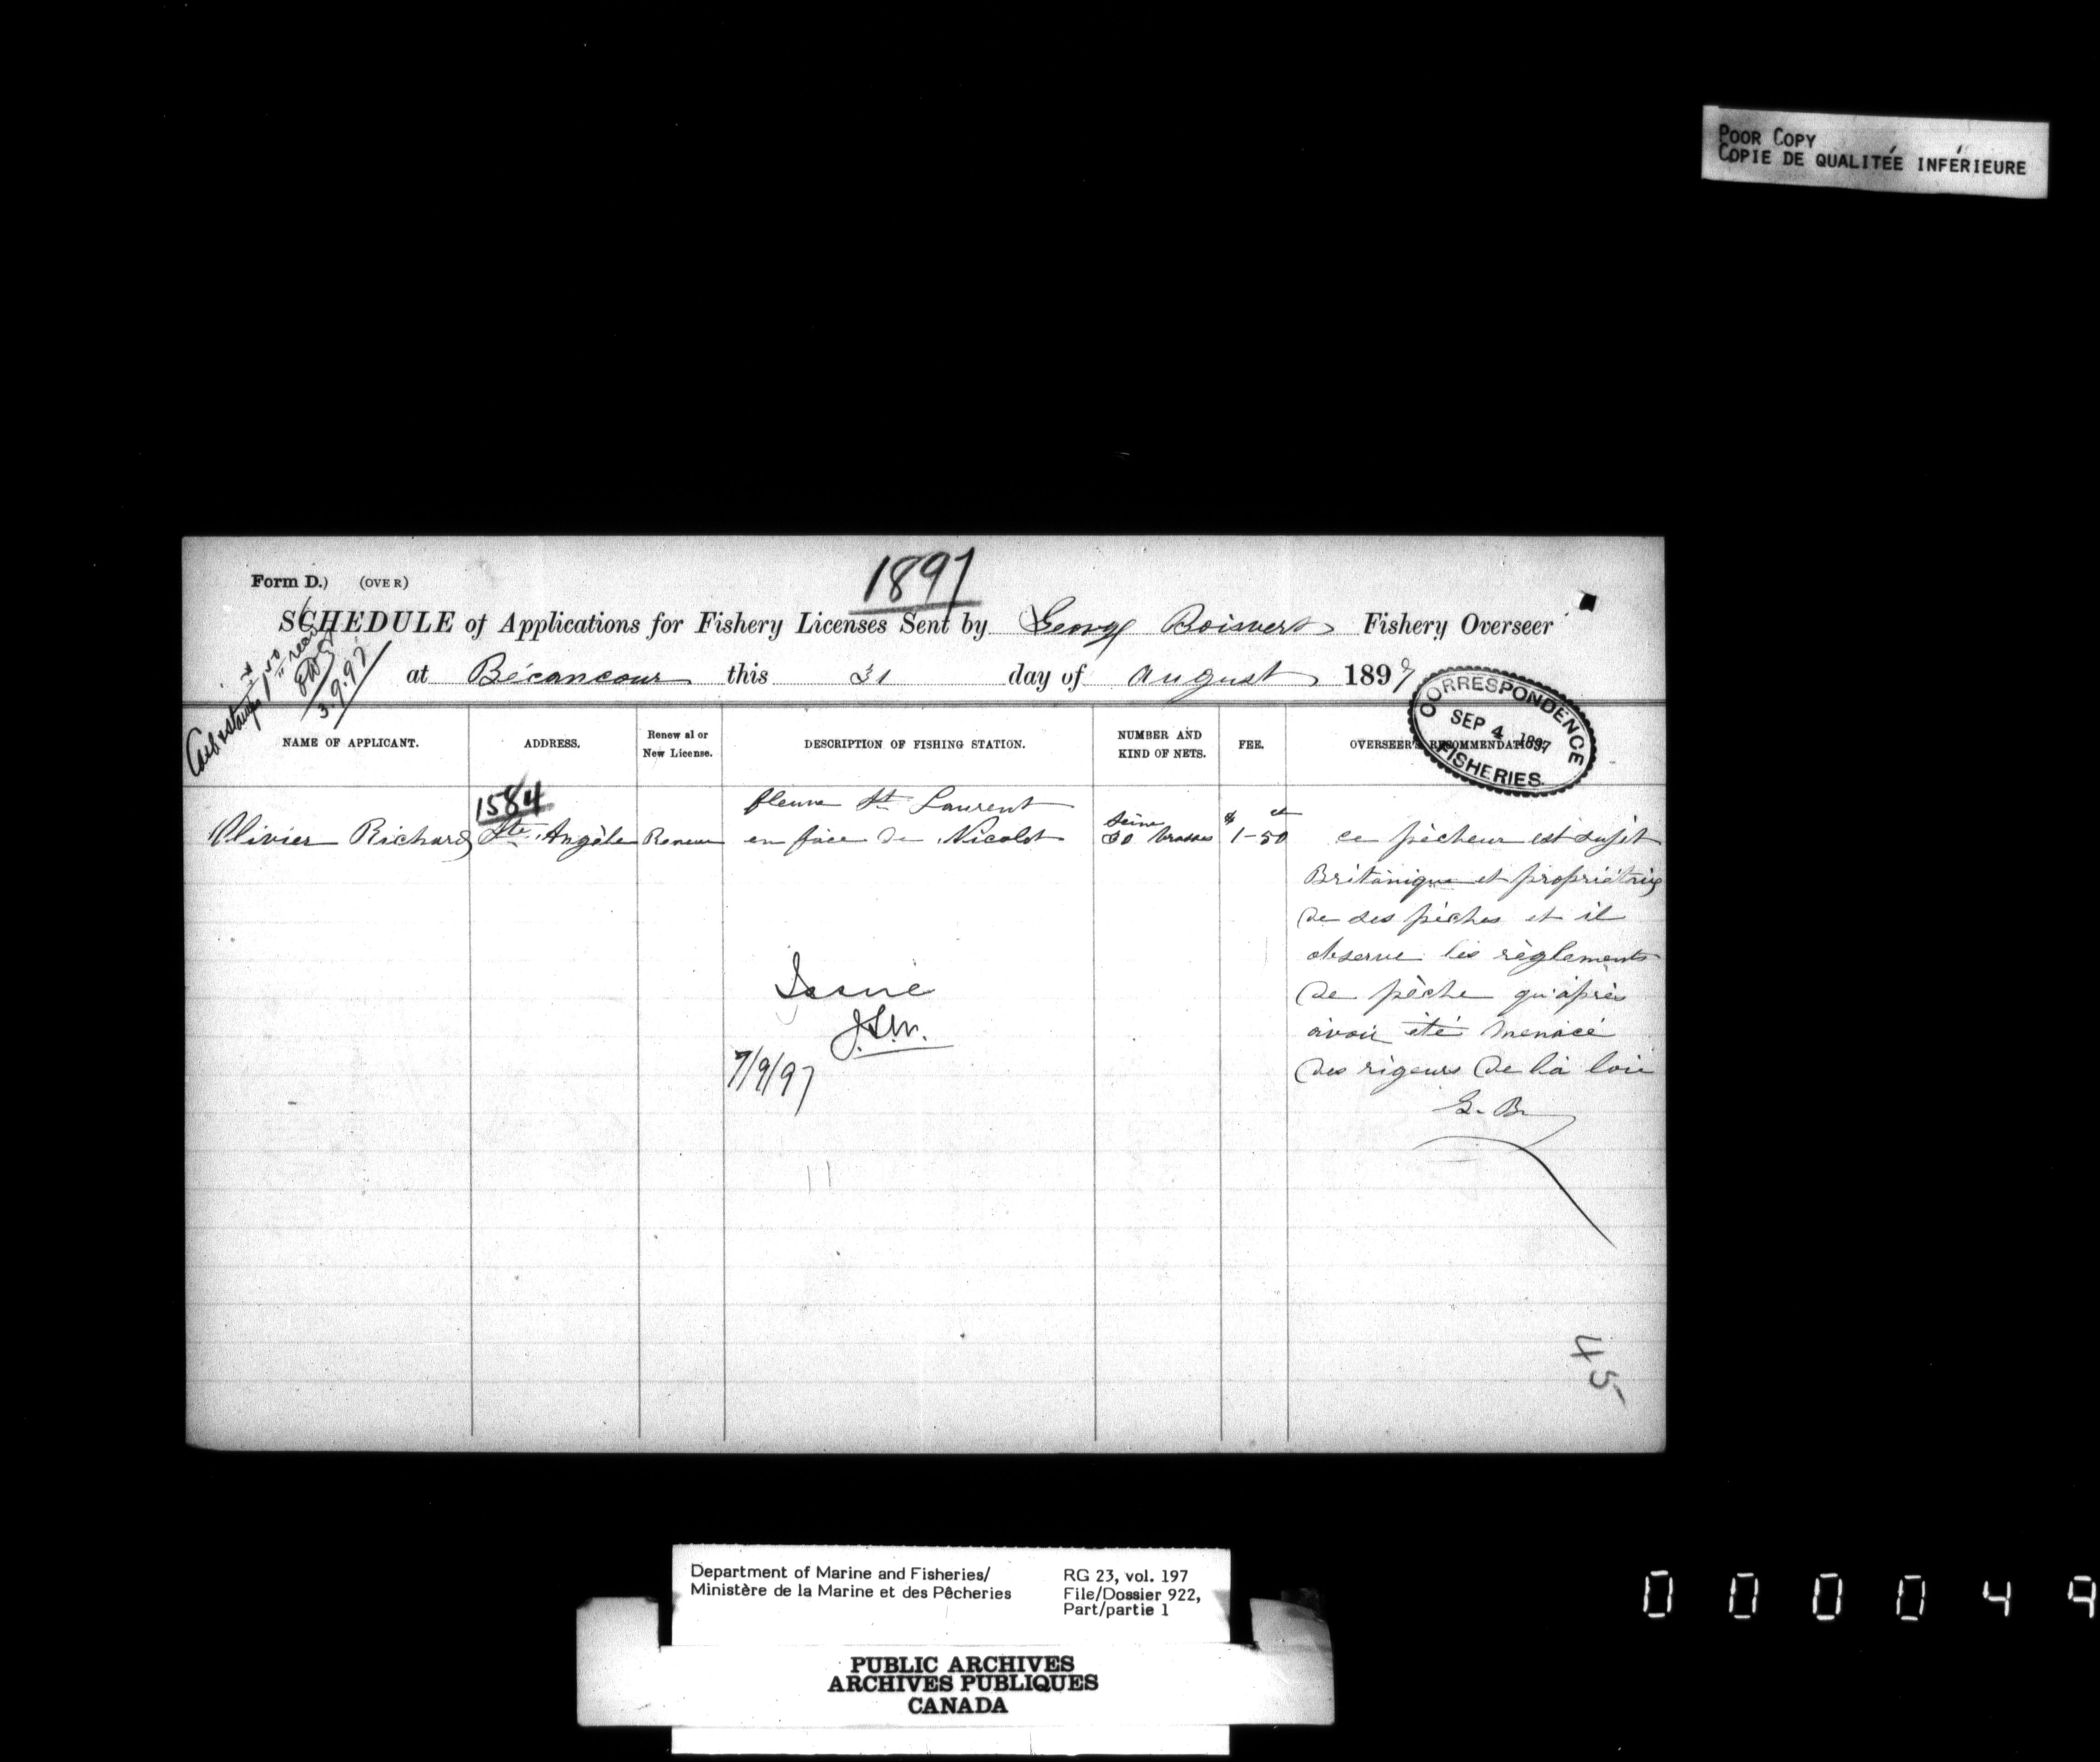 POOR COPY
COPIE DE QUALITÉE INFÉRIEURE
1897
Form D.) (OVER)
SCHEDULE of Applications for Fishery Licenses Sent by George Boisvert Fishery Overseer
at Bécancour this 31 day of August 1897
3/9.97
CORRESPONDENCE
SEP 4 1897
FISHERIES
NAME OF APPLICANT. ADDRESS. Renewal or New License. DESCRIPTION OF FISHING STATION. NUMBER AND KIND OF NETS. FEE. OVERSEER'S RECOMMENDATION
1584
fleuve St Laurent
Seine $ ct
Olivier Richard Ste Angèle Renew en face de Nicolet 30 brasses 1-50 ce pêcheur est sujet
Britanique et propriétaire
de ses pêches et il
observe les règlements
de pêche qu'après
avoir été menacé
des rigeurs de la loi
G. B.
Issue
J.S.W.
7/9/97
45
Department of Marine and Fisheries/
Ministère de la Marine et des Pêcheries
RG 23, vol. 197
File/Dossier 922,
Part/partie 1
PUBLIC ARCHIVES
ARCHIVES PUBLIQUES
CANADA
000049